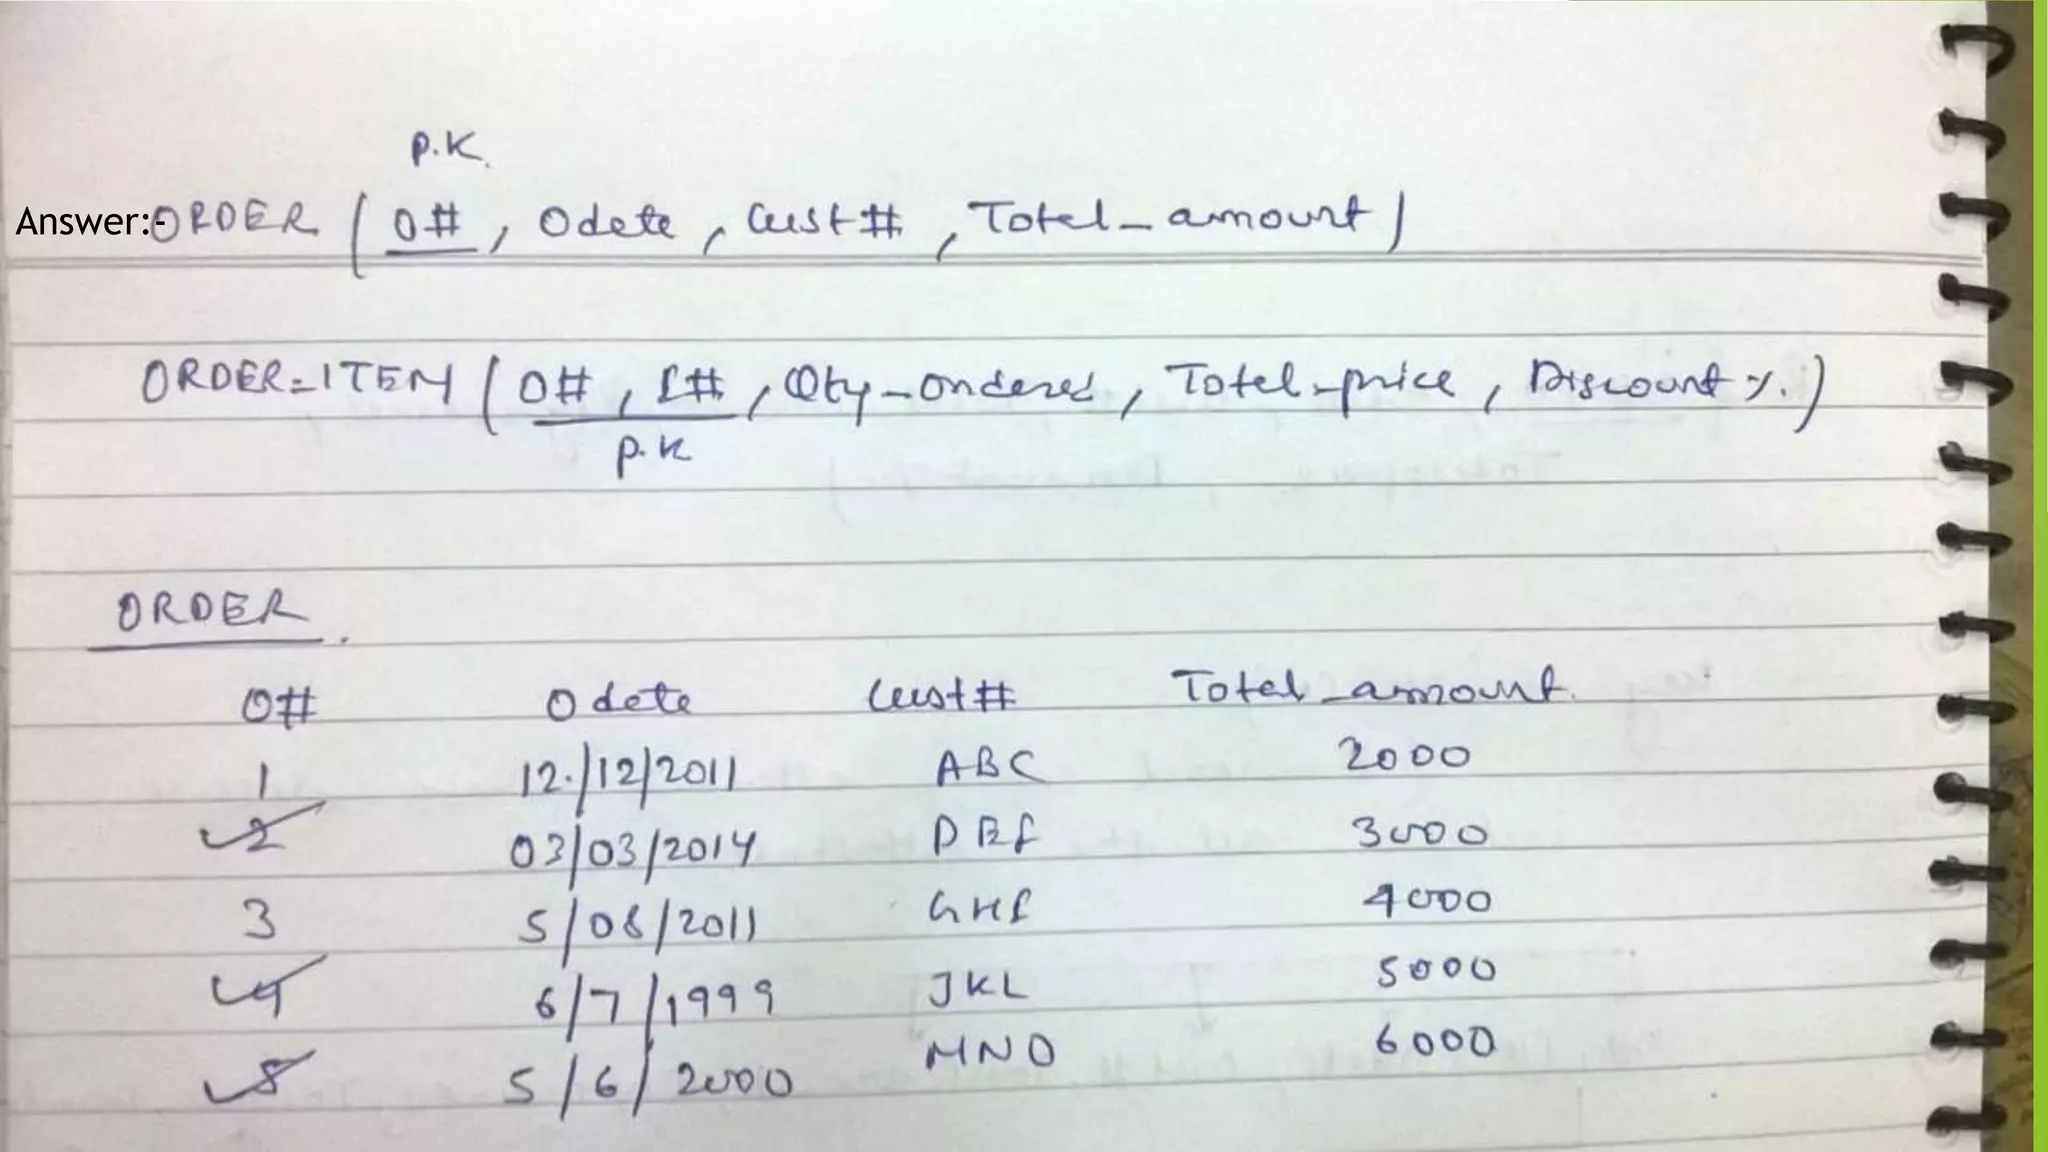 P.K.
Answer:- ORDER ( O# , Odate , Cust# , Total_amount )
ORDER_ITEM ( O# , I# , Qty_ordered , Total_price , Discount %. )
P.K
ORDER
O# Odate Cust# Total_amount
1 12/12/2011 ABC 2000
2 03/03/2014 DEF 3000
3 5/08/2011 GHI 4000
4 6/7/1999 JKL 5000
5/6/2000 MNO 6000